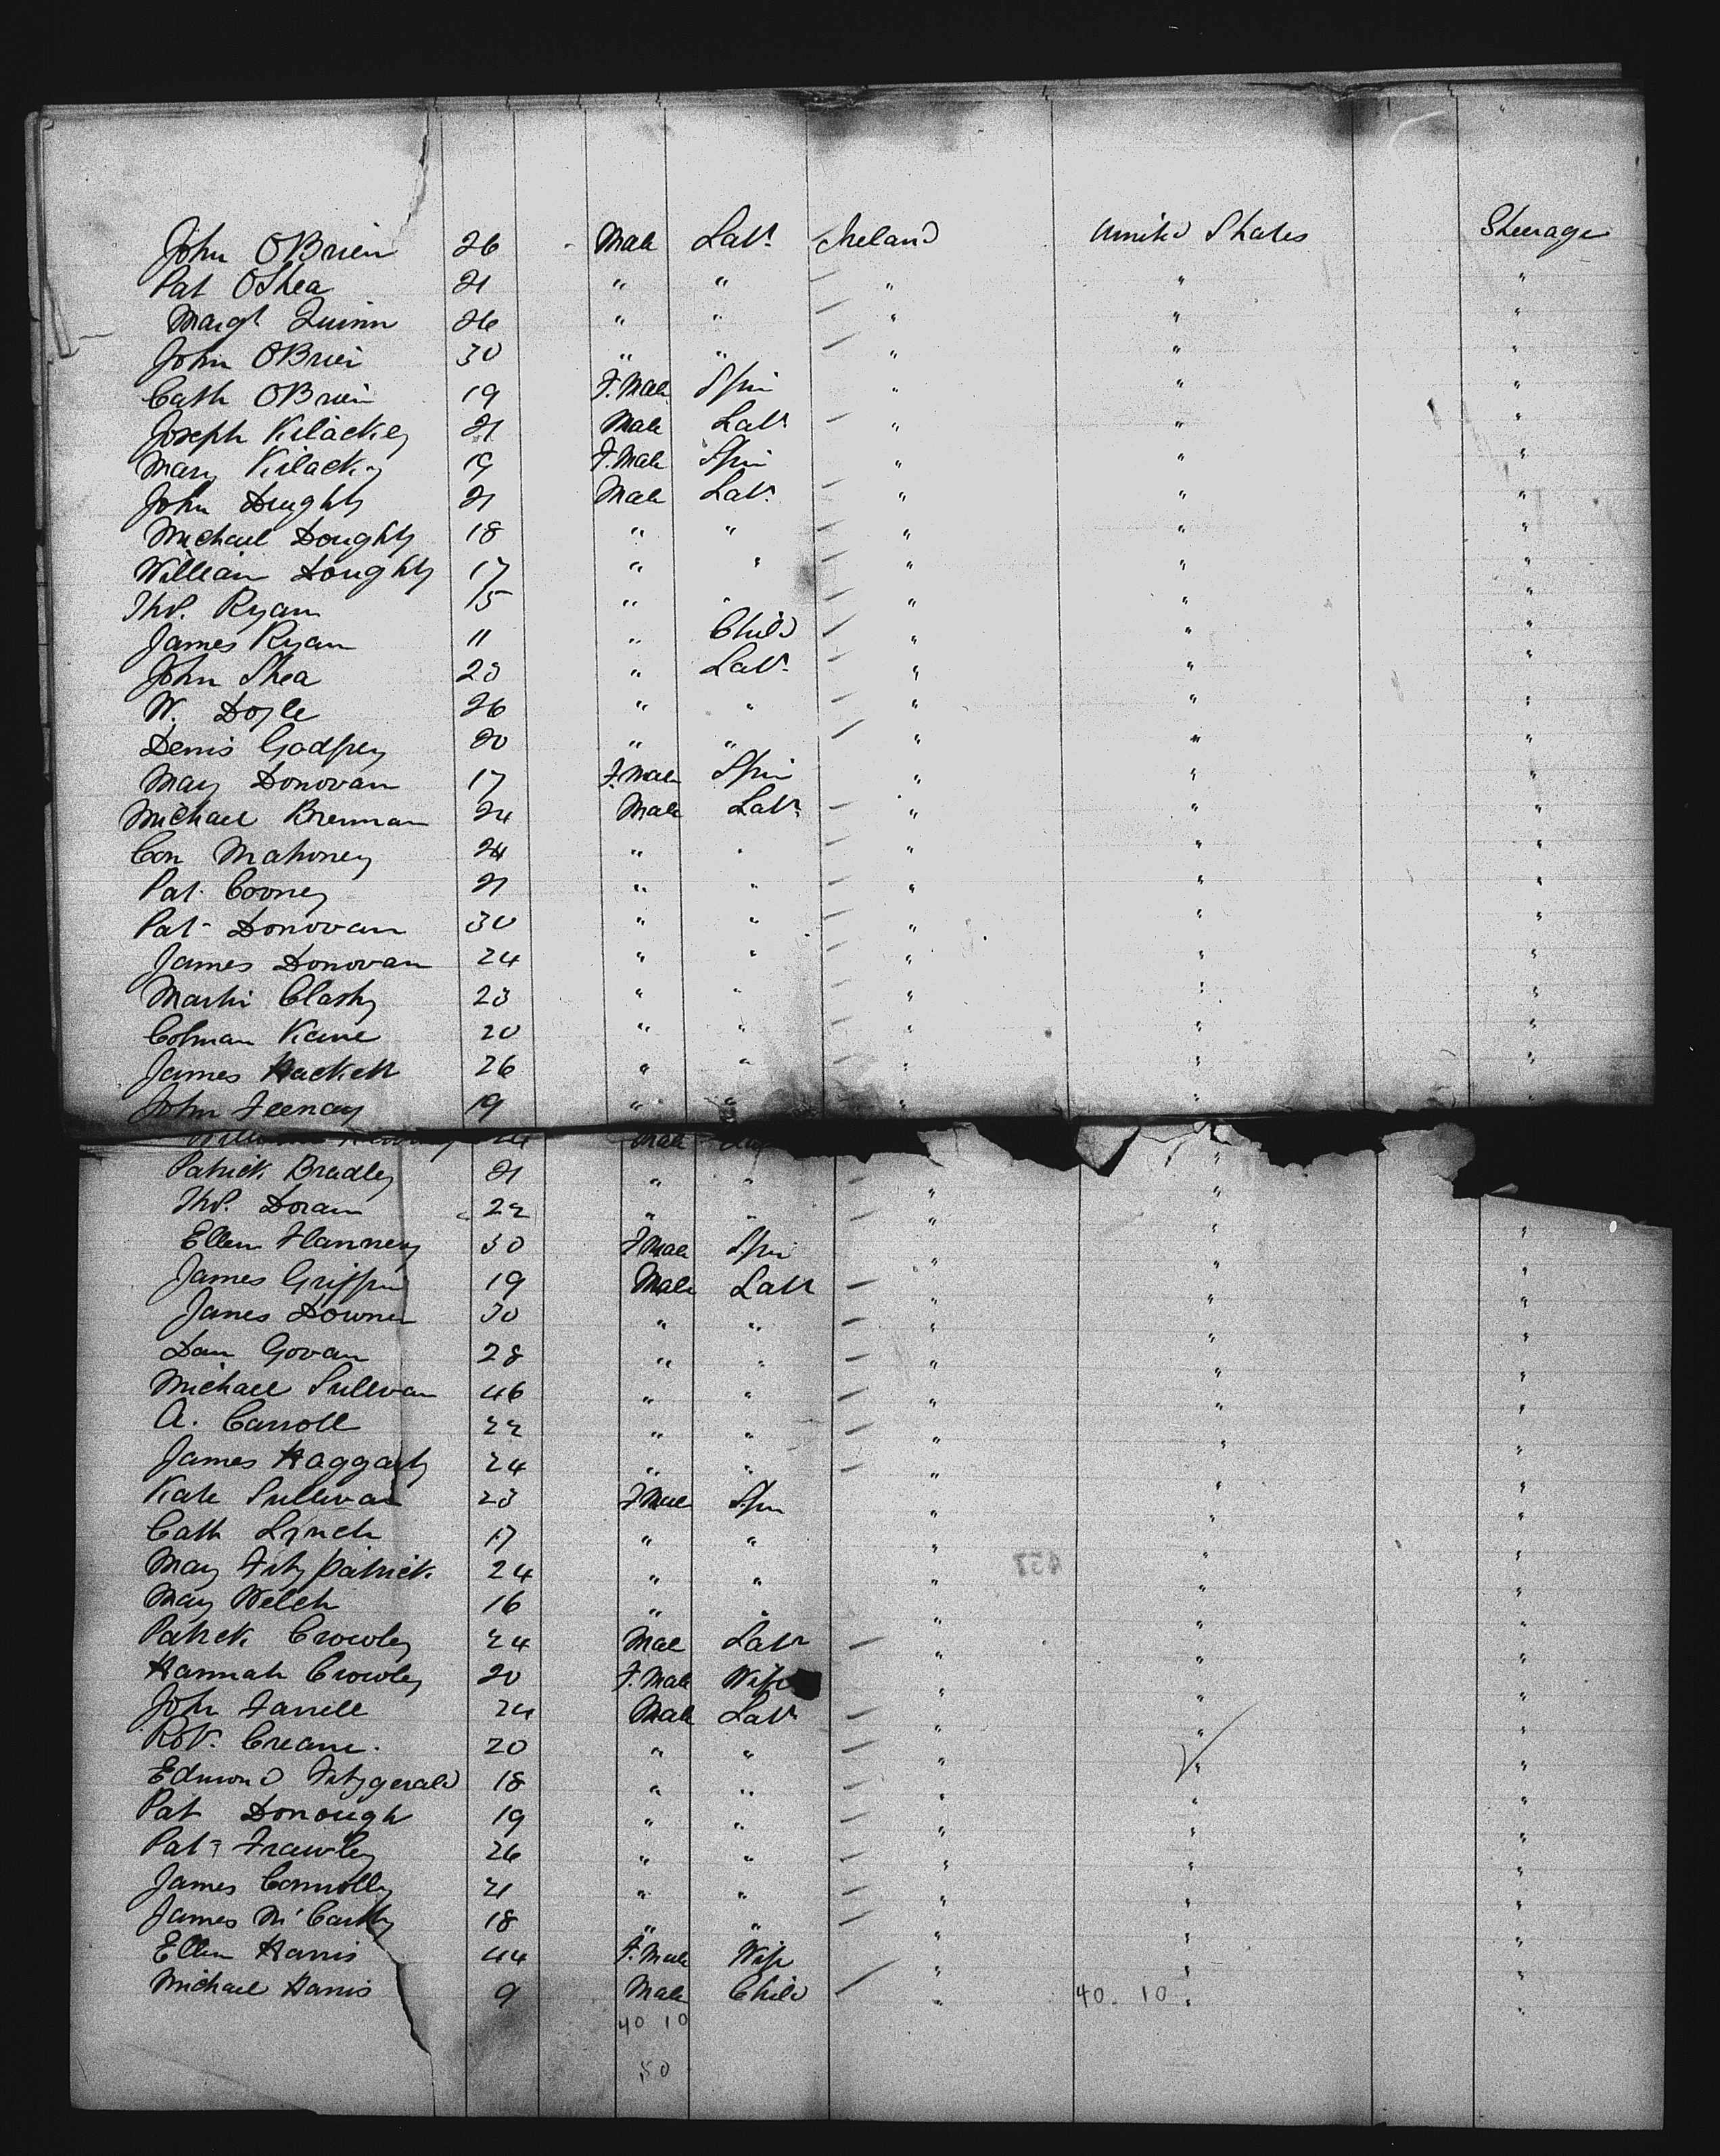 John OBrien 26 Male Labr Ireland United States Steerage
Pat OShea 21 " " " " "
Margt Quinn 26 " " " " "
John OBrien 30 " " " " "
Cath OBrien 19 F.Male Spin " " "
Joseph Kilackey 21 Male Labr " " "
Mary Kilacky 19 F.Male Spin " " "
John Doughty 21 Male Labr " " "
Michael Doughty 18 " " " " "
William Doughty 17 " " " " "
Thos. Ryan 15 " " " " "
James Ryan 11 " Child " " "
John Shea 23 " Labr " " "
W. Doyle 26 " " " " "
Denis Godfrey 20 " " " " "
Mary Donovan 17 F.Male Spin " " "
Michael Brennan 24 Male Labr " " "
Con Mahoney 24 " " " " "
Pat. Cooney 21 " " " " "
Pat Donovan 30 " " " " "
James Donovan 24 " " " " "
Martin Clasby 23 " " " " "
Colman Kane 20 " " " " "
James Hackett 26 " " " " "
John Feenay 19 " " " " "
Male
Patrick Bradley 21 " " " "
Thos. Doran 22 " " " " "
Ellen Flannery 30 F Male Spin " " "
James Griffin 19 Male Labr " " "
James Downer 30 " " " " "
Dan Govan 28 " " " " "
Michael Sullivan 46 " " " " "
A. Carroll 22 " " " " "
James Haggarty 24 " " " " "
Kate Sullivan 23 F Male Spin " " "
Cath Lynch 17 " " " " "
Mary Fitzpatrick 24 " " " " "
Mary Welch 16 " " " " "
Patrick Crowley 24 Male Labr " " "
Hannah Crowley 20 F.Male Wife " " "
John Farrell 24 Male Labr " " "
Robt. Creane. 20 " " " " "
Edmond Fitzgerald 18 " " " " "
Pat Donough 19 " " " " "
Pat Frawley 26 " " " " "
James Connolly 21 " " " " "
James McCarthy 18 " " " " "
Ellen Harris 44 F.Male Wife " " "
Michael Harris 9 Male Child " 40. 10 " "
40 10
50